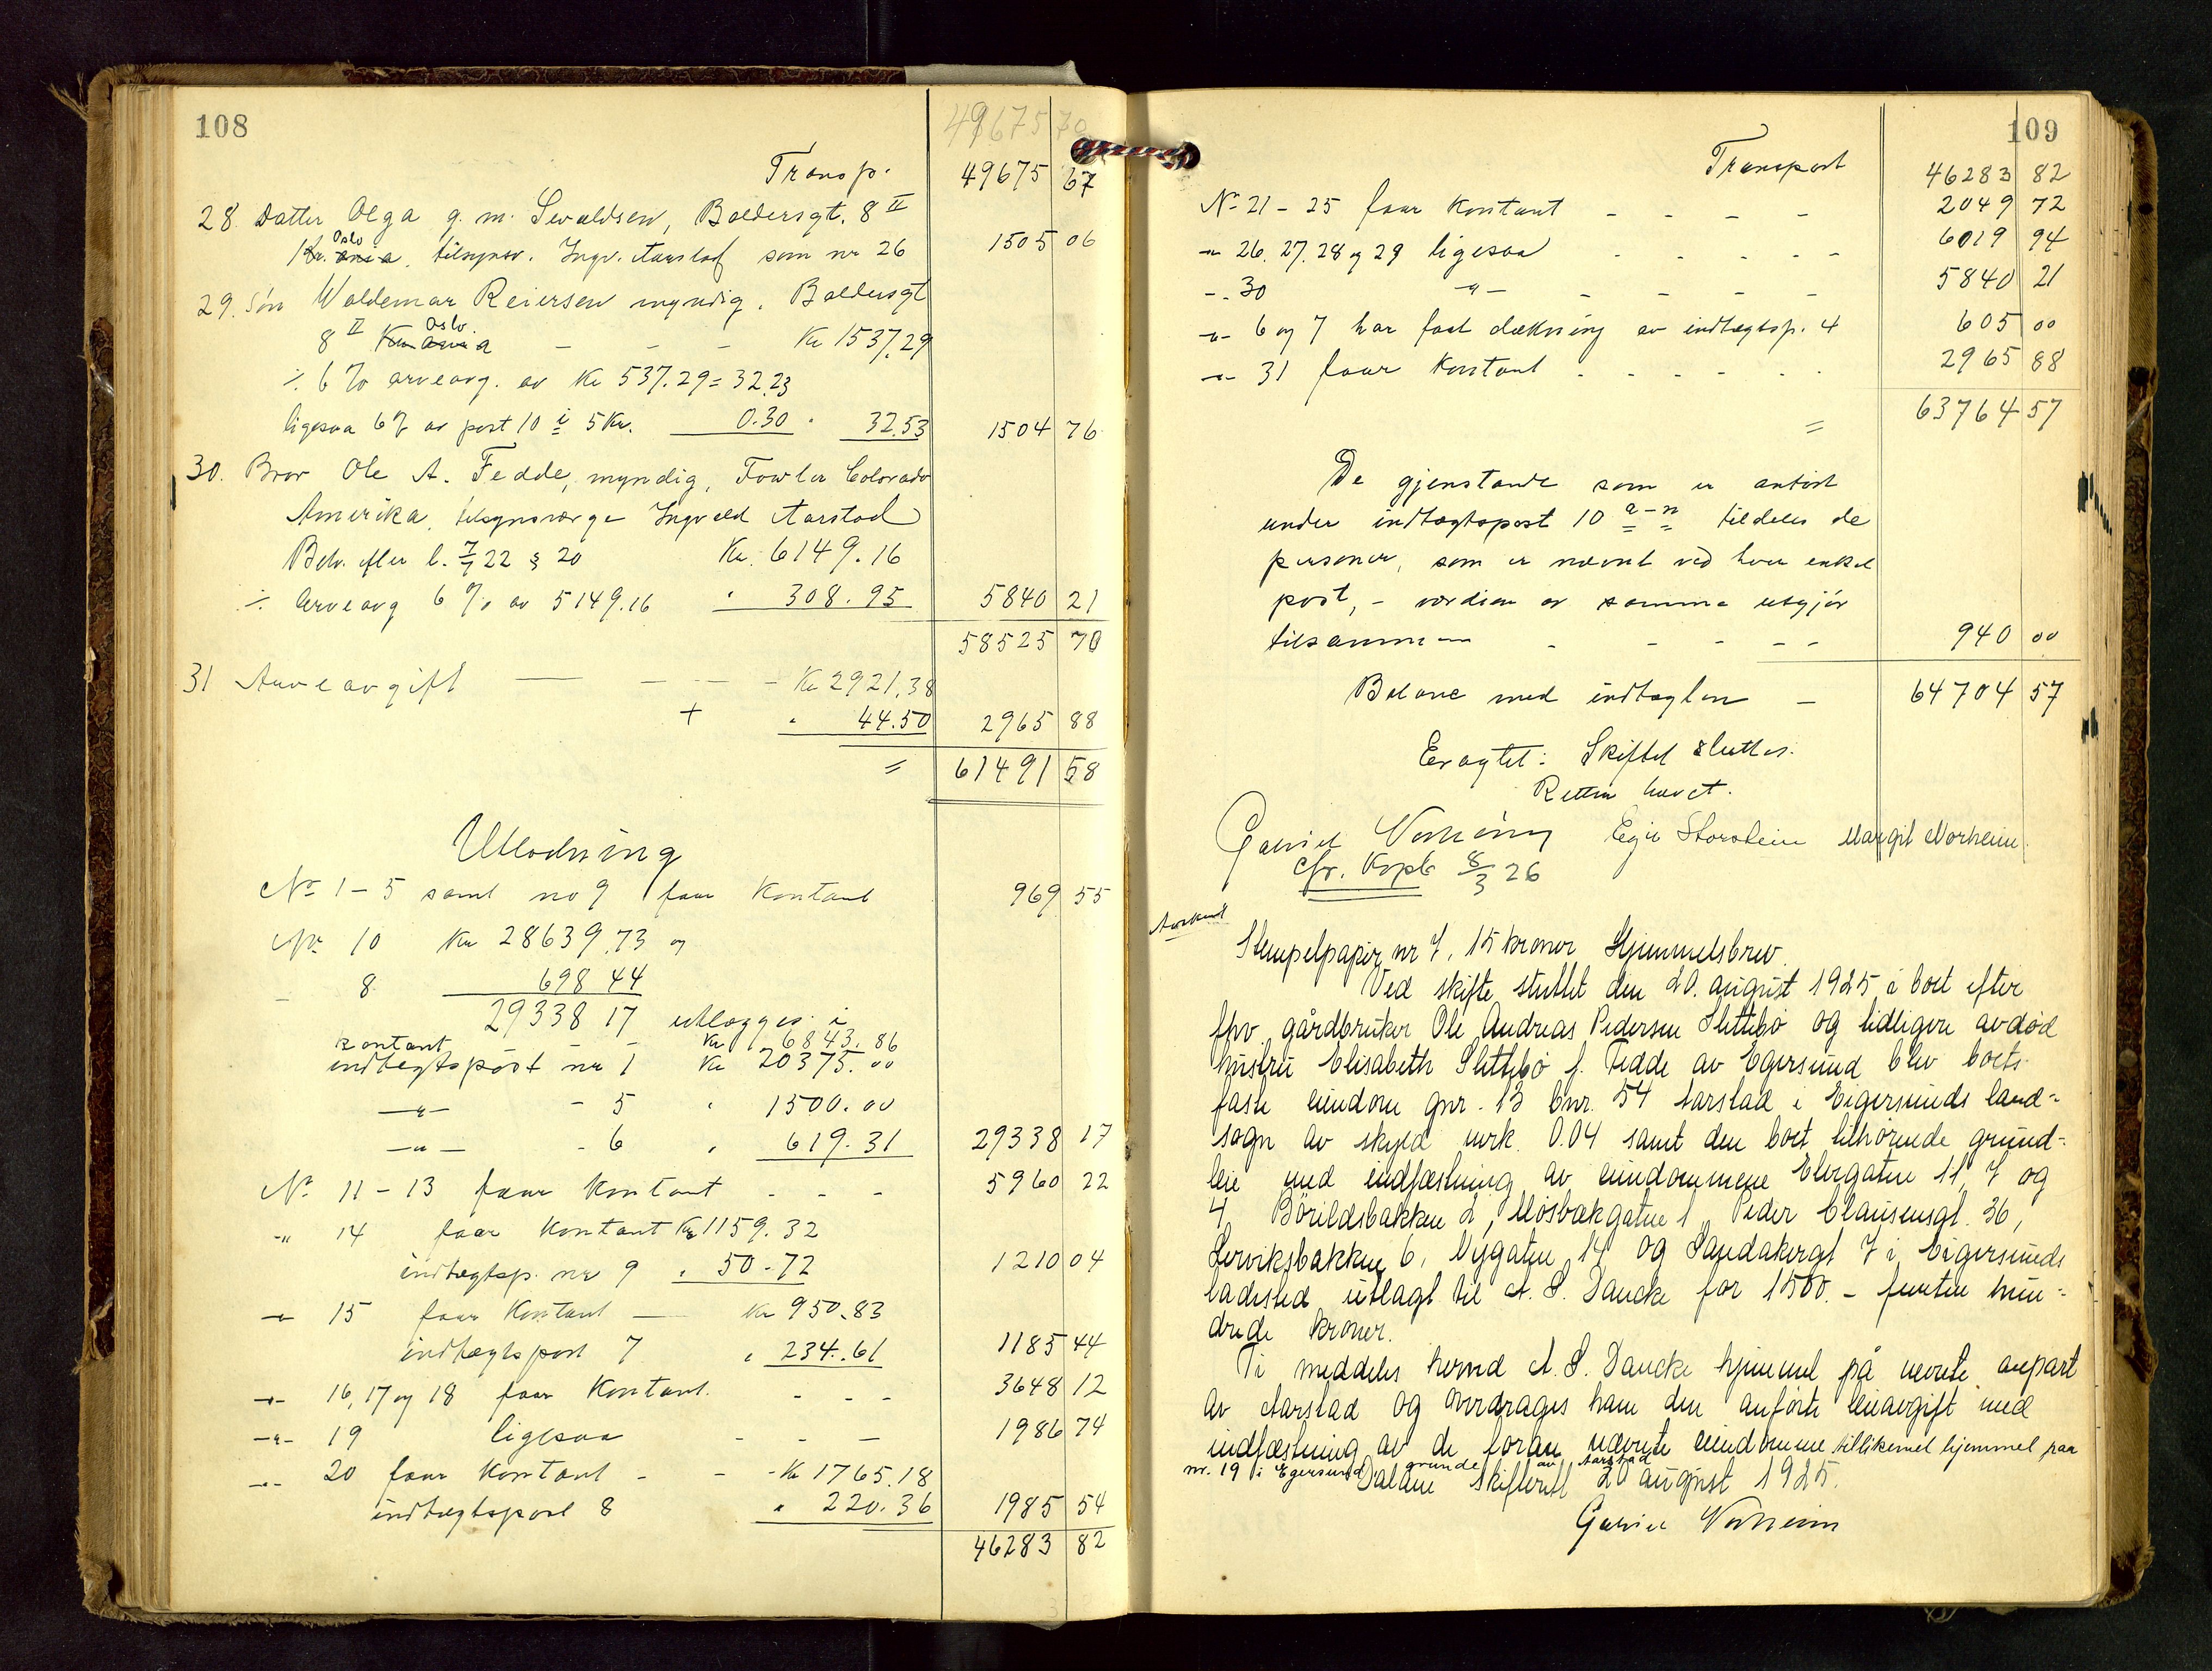 108
49675 70
Transp. 49675 67
28. Datter Olga g. m. Sevaldsen, Baldersgt. 8 II
Oslo
Kr.ania, tilsynsv. Ingv. Aarstad som nr 26 1505 06
29. Søn Waldemar Reiersen myndig, Baldersgt
Oslo
8 II Kr.ania - - - Kr 1537,29
÷ 6 % arveavg. av Kr 537.29 = 32.23
ligesaa 6 % av post 10 i 5 Kr. 0.30 " 32.53 1504 76
30. Bror Ole A. Fedde, myndig, Fowler Colorado
Amerika, tilsynsværge Ingvald Aarstad
Bev. efter l. 7/7 22 § 20 Kr. 6149.16
÷ Arveavg 6 % av 5149.16 " 308.95 5840 21
58525 70
31 Arveavgift — - - - Kr 2921.38
+ " 44.50 2965 88
= 61491 58
Utlodning
No 1 - 5 samt no 9 faar Kontant 969 55
No 10 Kr 28639,73 og
- 8 698 44
29338 17 utlægges i
Kontant Kr 6843.86
indtegtspost nr 1 Kr 20375.00
-"- - 5 " 1500.00
-"- - 6 " 619.31 29338 17
No 11 - 13 faar Kontant - - - 5960 22
-" 14 faar Kontant Kr 1159.32
indtægtsp. nr 9 " 50.72 1210 04
-"- 15 faar Kontant — Kr 950.83
indtægtspost 7 " 234.61 1185 44
-"- 16, 17 og 18 faar Kontant. - - - 3648 12
-"- 19 ligesaa - - - 1986 74
-"- 20 faar Kontant - - - Kr 1765.18
indtægtspost 8 " 220.36 1985 54
46283 82
109
Transport 46283 82
No 21 - 25 faar Kontant - - - - 2049 72
-"- 26. 27. 28 og 29 ligesaa - - - - - 6019 94
-"- 30 -"- - - - - 5840 21
-"- 6 og 7 har faat dækning av indtægtsp. 4 605 00
-"- 31 faar Kontant - - - - - - 2965 88
= 63764 57
De gjenstande som er anført
under indtægtspost 10 a-n tildeles de
personer, som er nævnt ved hver enkel
post, - værdien av samme utgjør
tilsammen - - - - - 940 00
Balance med indtægten - 64704 57
Eragtet: Skiftet sluttes.
Retten hævet.
Gabriel Norheim Egil Storstein Margit Norheim.
cfr. Kopb 8/3 26
Stempelpapir nr 7, 15 kroner Hjemmelsbrev.
Ved skifte, sluttet den 20. august 1925 i boet efter
fhv. gårdbruker Ole Andreas Pedersen Slettebø og tidligere avdød
hustru Elisabeth Slettebø f. Fedde av Egersund blev boets
faste eiendom gnr. 13 bnr. 54 Aarstad i Eigersunds land-
sogn av skyld mrk. 0.04 samt den boet tilhørende grund-
leie med indfæstning av eiendommene Elvegaten 11, 7 og
4 Børildsbakken 2, Mosbækgaten 1, Peder Clausensgt. 36,
Lerviksbakken 6, Nygaten 14 og Sandakergt 7 i Eigersunds
ladested utlagt til A. S. Dancke for 1500. - femten hun-
drede kroner.
Ti meddeles herved A. S. Dancke hjemmel på nævnte anpart
av Aarstad og overdrages ham den anførte leieavgift med
indfæstning av de foran nævnte eiendomme tillikemed hjemmel paa
nr. 19 i Egersund grunde av Aarstad
Dalane skifterett 20 august 1925.
Gabriel Norheim